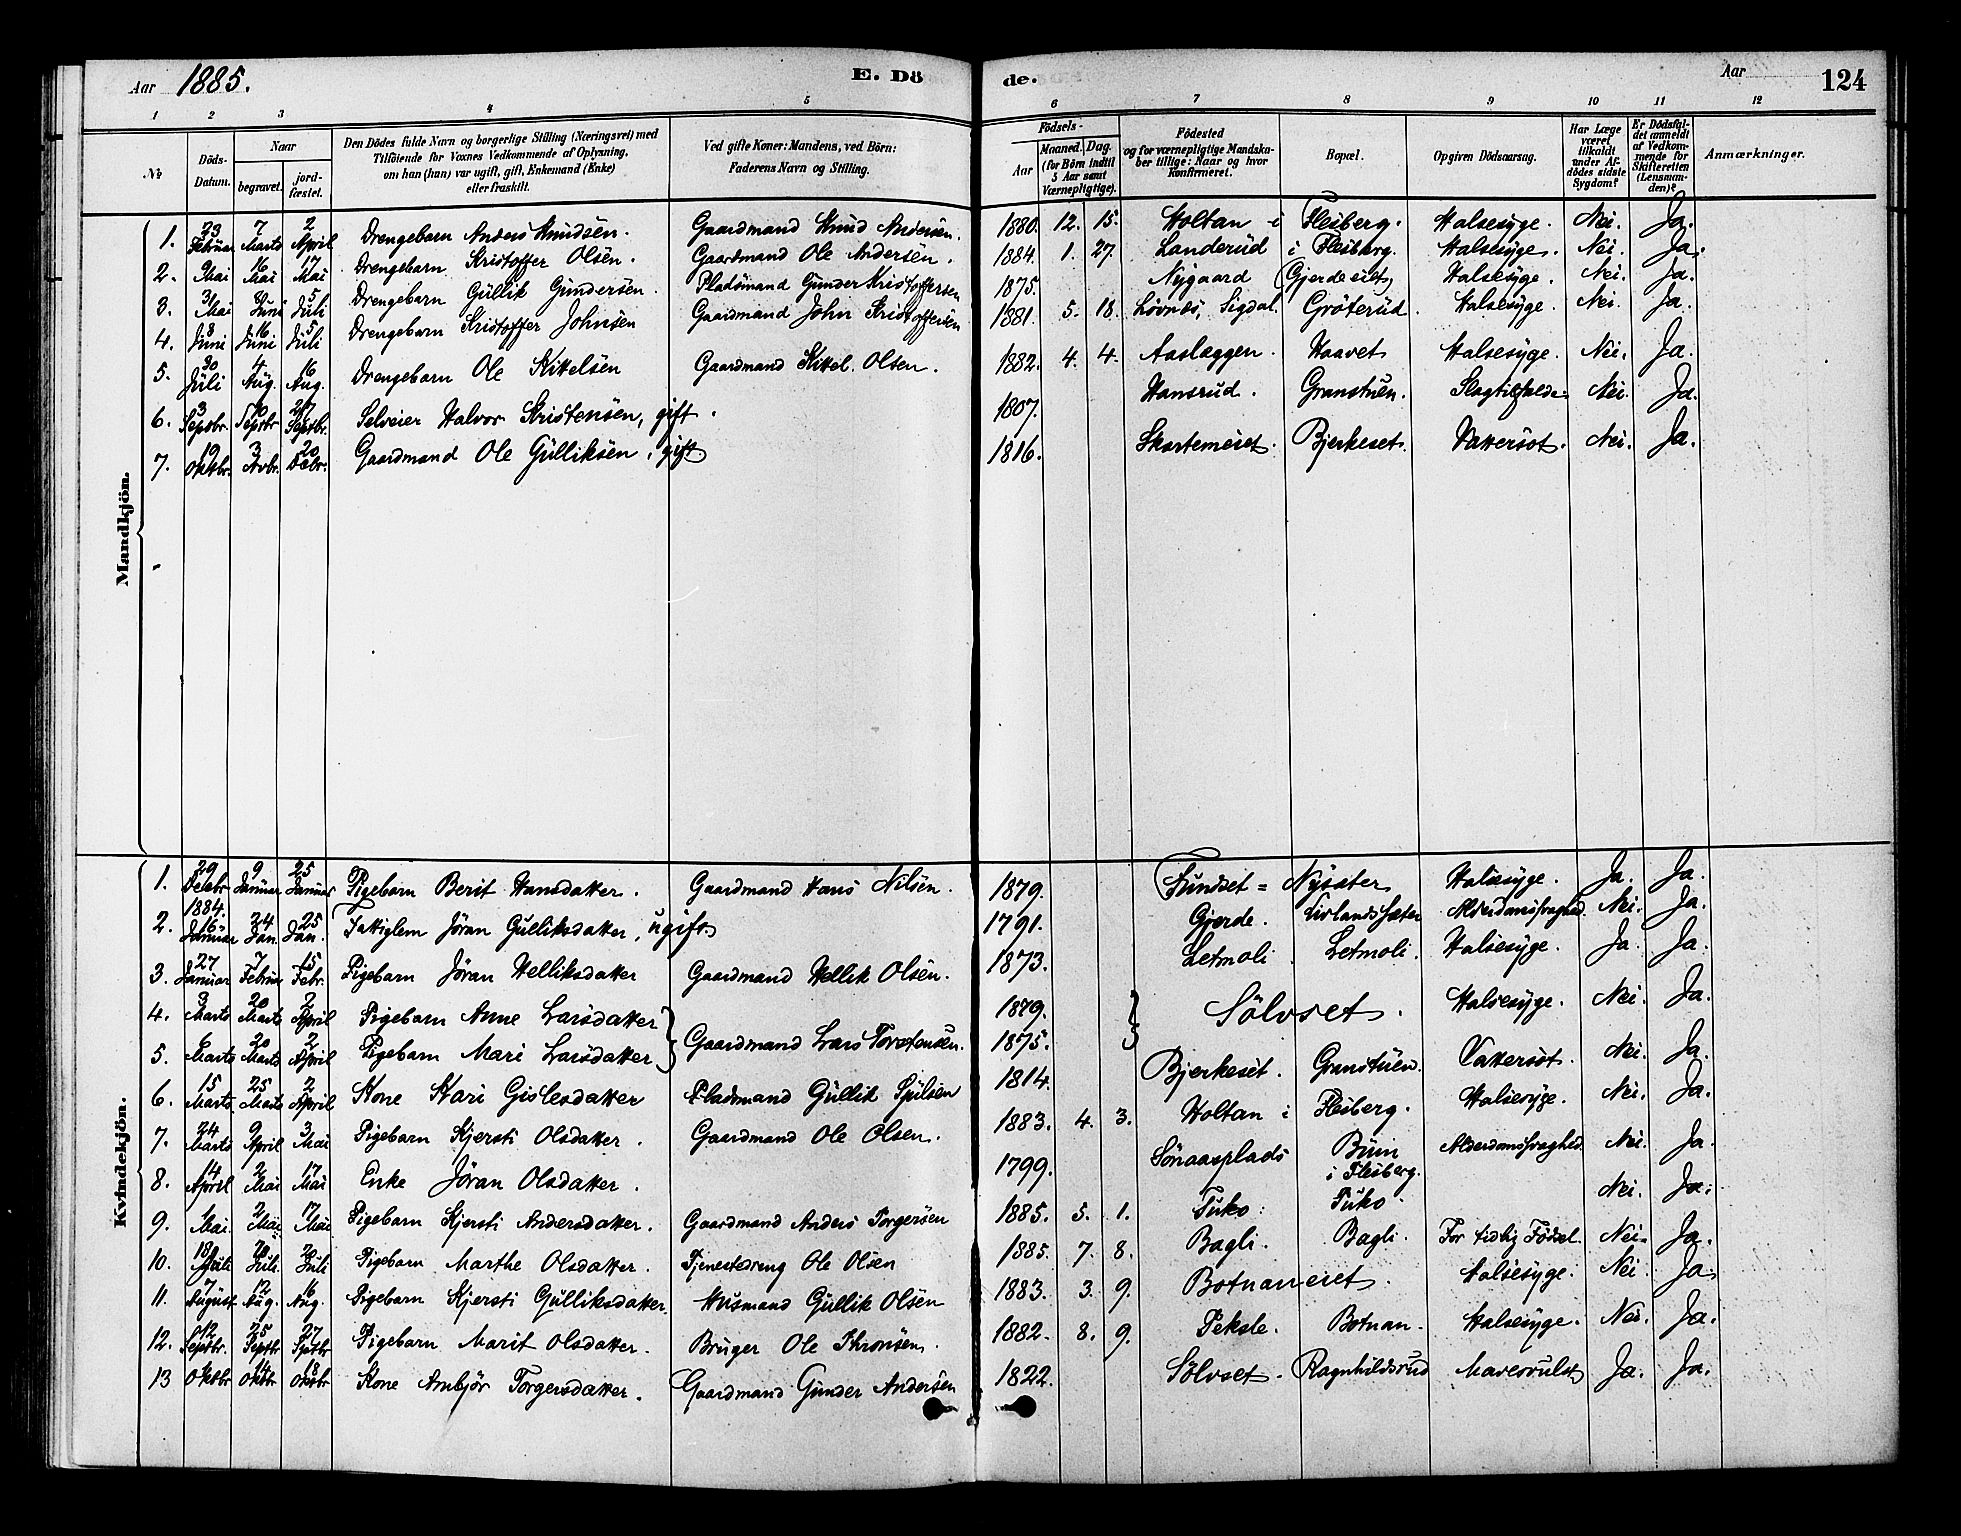 Aar 1885. E. Dö
de. Aar 124
1 2 3 4 5 6 7 8 9 10 11 12
№ Döds-Datum. Naar begravet. jordfæstet. Den Dödes fulde Navn og borgerlige Stilling (Næringsvei) med Tilföiende for Voxnes Vedkommende af Oplysning, om han (hun) var ugift, gift, Enkemand (Enke) eller fraskilt. Ved gifte Koner: Mandens, ved Börn: Faderens Navn og Stilling. Födsels- Aar Maaned. Dag. (for Börn indtil 5 Aar samt Værnepligtige). Födested og for værnepligtige Mandskaber tillige: Naar og hvor Konfirmeret. Bopæl. Opgiven Dödsaarsag. Har Læge været tilkaldt under Afdödes sidste Sygdom? Er Dödsfaldet anmeldt af Vedkommende for Skifteretten (Lensmanden)? Anmærkninger.
Mandkjön.
1. 23 Februar 7 Marts 2 April Drengebarn Anders Knudsen. Gaardmand Knud Andersen. 1880. 12. 15. Holtan i Flesberg. Halsesyge. Nei. Ja.
2. Mai 16 Mai 17 Mai Drengebarn Kristoffer Olsen. Gaardmand Ole Andersen. 1884. 1. 27. Landerud i Flesberg. Halsesyge. Nei. Ja.
3. 31 Mai Juni 5 Juli Drengebarn Gullik Gundersen. Pladsmand Gunder Kristoffersen 1875. Nygaard (Gjerdeeiet) Halsesyge. Nei. Ja.
4. 8 Juni 16 Juni 5 Juli Drengebarn Kristoffer Johnsen Gaardmand John Kristoffersen 1881. 5. 18. Lövnes, Sigdal. Gröterud. Halsesyge. Nei. Ja.
5. 30 Juli 4 Aug. 16 Aug. Drengebarn Ole Kittelsen Gaardmand Kittel Olsen. 1882. 4. 4. Aaslæggen. Haavet Halsesyge. Nei. Ja.
6. 3 Septbr. 10 Septbr 27 Septbr. Selveier Halvor Kristensen, gift. 1807. Hansrud. Granstuen. Slagtilfælde Nei. Ja.
7. 19 Oktbr. 3 Novbr. 20 Debr. Gaardmand Ole Gulliksen, gift 1816. Skartemeiet. Bjerkeset. Vattersot. Nei. Ja.
Kvindekjön.
1. 29 Decbr 1884. 9 Januar 25 Januar Pigebarn Berit Hansdatter. Gaardmand Hans Nilsen. 1879. Nysæter Halsesyge. Ja. Ja.
2. 16 Januar 24 Jan. 25 Jan. Fattiglem Jøran Gulliksdatter, ugift 1791. Gjerde. Alderdomssvaghed. Nei. Ja.
3. 27 Januar 7 Februar 15 Febr. Pigebarn Jøran Helliksdatter Gaardmand Hellik Olsen. 1873. Letmoli. Letmoli. Halsesyge. Ja. Ja.
4. 3 Marts 20 Marts 2 April Pigebarn Anne Larsdatter 1879. Sölvset. Halsesyge. Nei. Ja.
5. 6 Marts 20 Marts 2 April Pigebarn Mari Larsdatter Gaardmand Lars Torstensen. 1875.
6. 15 Marts 25 Marts 2 April Kone Kari Gislesdatter Pladsmand Gullik 1814. Bjerkeset. Granstuen. Vattersot. Nei. Ja.
7. 24 Marts 9 April 3 Mai Pigebarn Kjersti Olsdatter. Gaardmand Ole Olsen. 1883. 4. 3. Holtan i Flesberg. Halsesyge. Nei. Ja.
8. 14 April 2 Mai 17 Mai Enke Jöran Olsdatter. 1799. Buin i Flesberg. Alderdomssvaghed. Nei. Ja.
9. 1 Mai. 2 Mai 17 Mai Pigebarn Kjersti Andersdatter. Gaardmand Anders Torgersen 1885. 5. 1. Tuko. Tuko. Nei. Ja.
10. Juli 20 Juli. 2 Juli Pigebarn Marthe Olsdatter. Tjenestedreng Ole Olsen 1885. 7. 8. Bagli. Bagli. For tidlig Födsel. Nei. Ja.
11. 7 August 12 Aug. 16 Aug. Pigebarn Kjersti Gulliksdatter Husmand Gullik Olsen 1883. 3. 9. Botnaneiet. Halsesyge. Nei. Ja.
12. 12 Septbr. 25 Septbr 27 Septbr Pigebarn Marit Olsdatter. Bruger Ole Thronsen. 1882. 8. 9. Teksle. Botnan. Halsesyge. Nei. Ja.
13 Oktbr 14 Oktbr 18 Oktbr Kone Anbjör Torgersdatter. Gaardmand Gunder Andersen 1822. Sölvset. Ragnhildsrud Mavesvulst Ja. Ja.